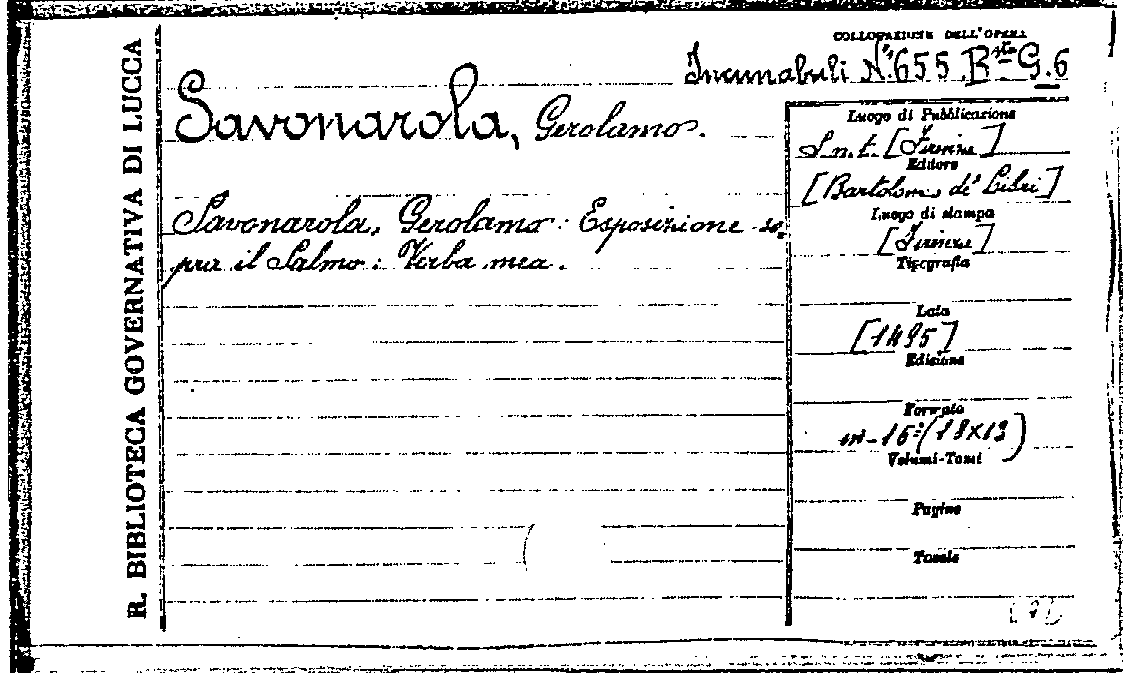 R. BIBLIOTECA GOVERNATIVA DI LUCCA
COLLOCAZIONE DELL'OPERA
Incunabuli N.° 655 Bsta G.6
Savonarola, Gerolamo.
Savonarola, Gerolamo: Esposizione so-
pra il Salmo: Verba mea.
Luogo di Pubblicazione
S. n. t. [Firenze]
Editore
[Bartolomeo de' Libri]
Luogo di stampa
[Firenze]
Tipografia
Data
[1495]
Edizione
Formato
in-16: (18×13)
Volumi-Tomi
Pagine
Tavole